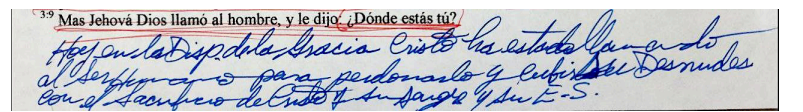 3:9 Mas Jehová Dios llamó al hombre, y le dijo: ¿Dónde estás tú?
Hoy en la Disp. de la Gracia Cristo ha estado llamando
al Ser Humano para perdonarlo y cubrir su Desnudes
con el Sacrificio de Cristo y su Sangre y su E.S.